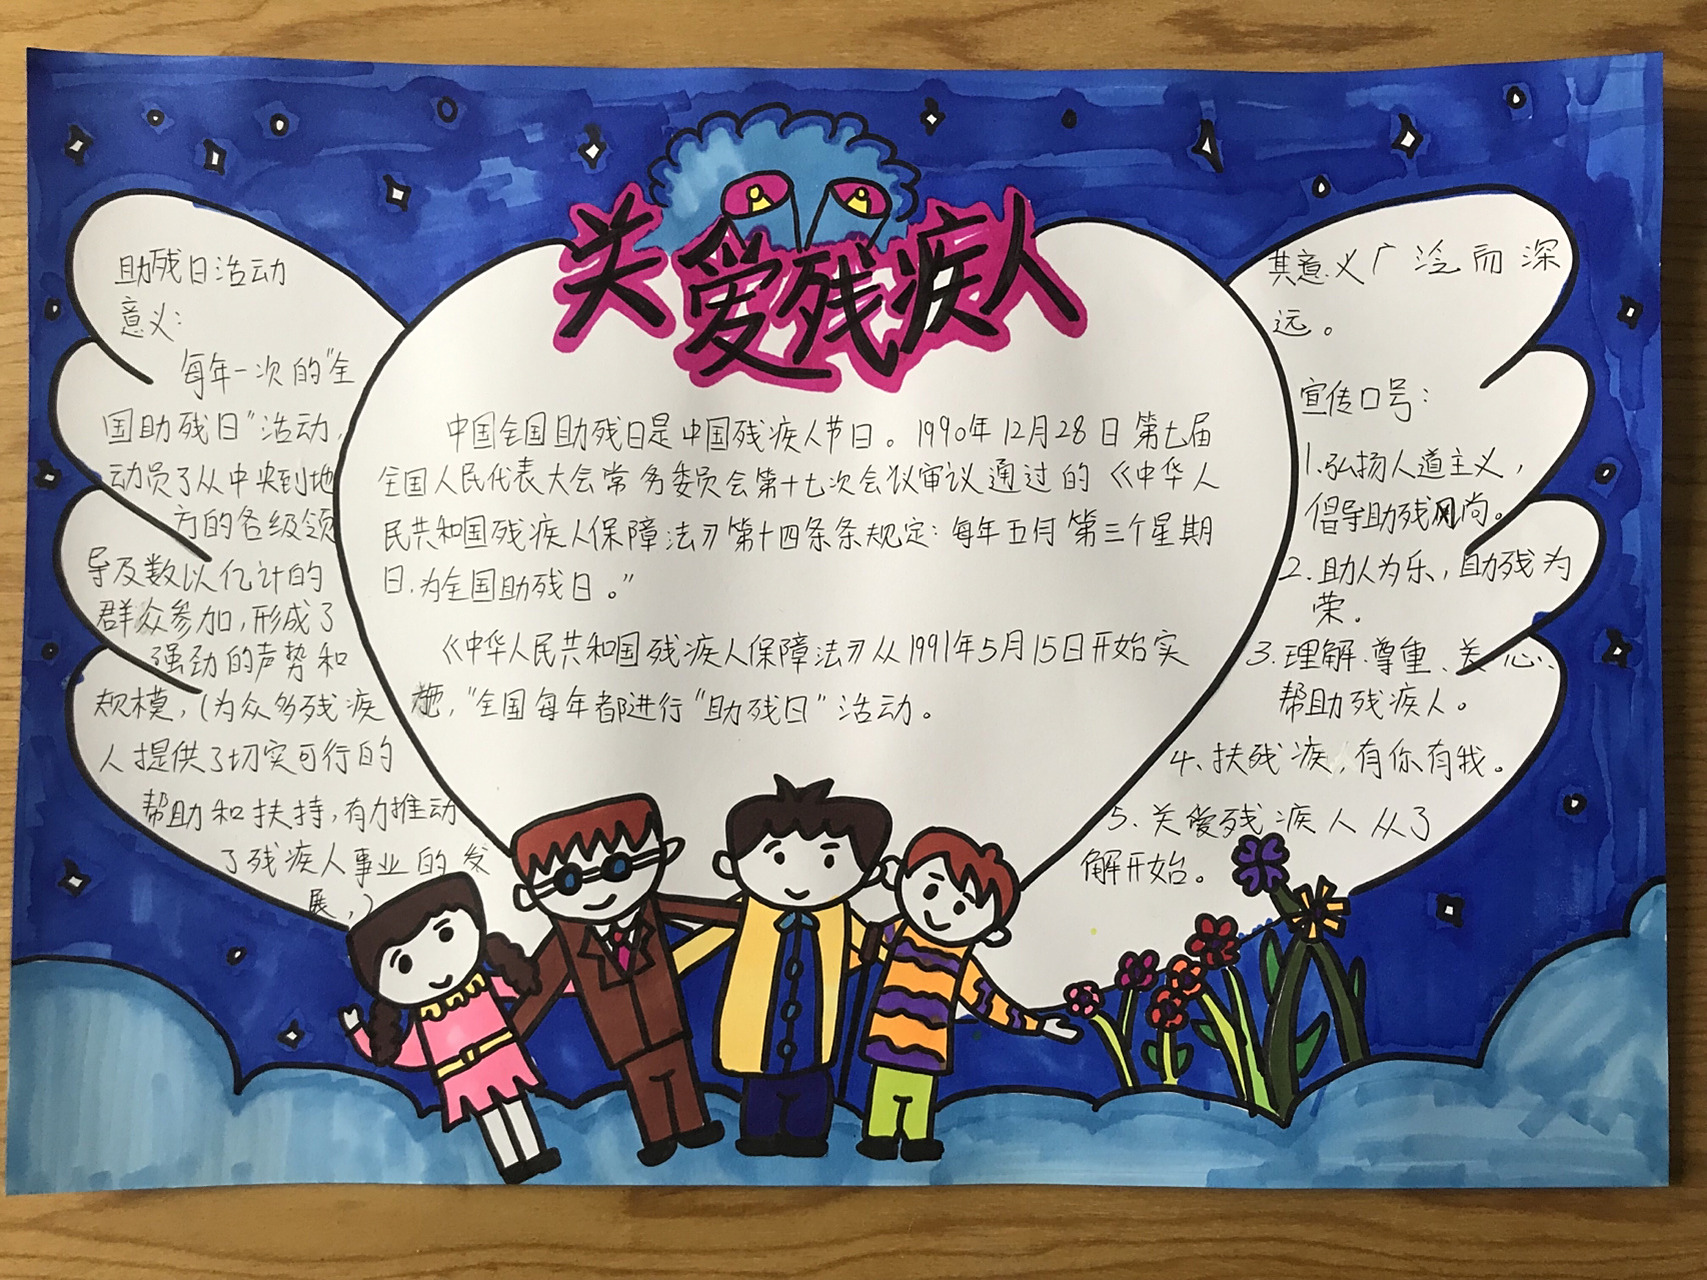 关爱残疾人
助残日活动
意义：
每年一次的“全
国助残日”活动，
动员了从中央到地
方的各级领
导及数以亿计的
群众参加，形成了
强劲的声势和
规模，（为众多残疾
人提供了切实可行的
帮助和扶持，有力推动
了残疾人事业的发
展，）
中国全国助残日是中国残疾人节日。1990年12月28日第七届
全国人民代表大会常务委员会第十七次会议审议通过的《中华人
民共和国残疾人保障法》第十四条条规定：每年五月第三个星期
日，为全国助残日。”
《中华人民共和国残疾人保障法》从1991年5月15日开始实
施，“全国每年都进行“助残日”活动。
其意义广泛而深
远。
宣传口号：
1.弘扬人道主义，
倡导助残风尚。
2.助人为乐，自助残为
荣。
3.理解、尊重、关心、
帮助残疾人。
4、扶残疾，有你有我。
5.关爱残疾人从了
解开始。